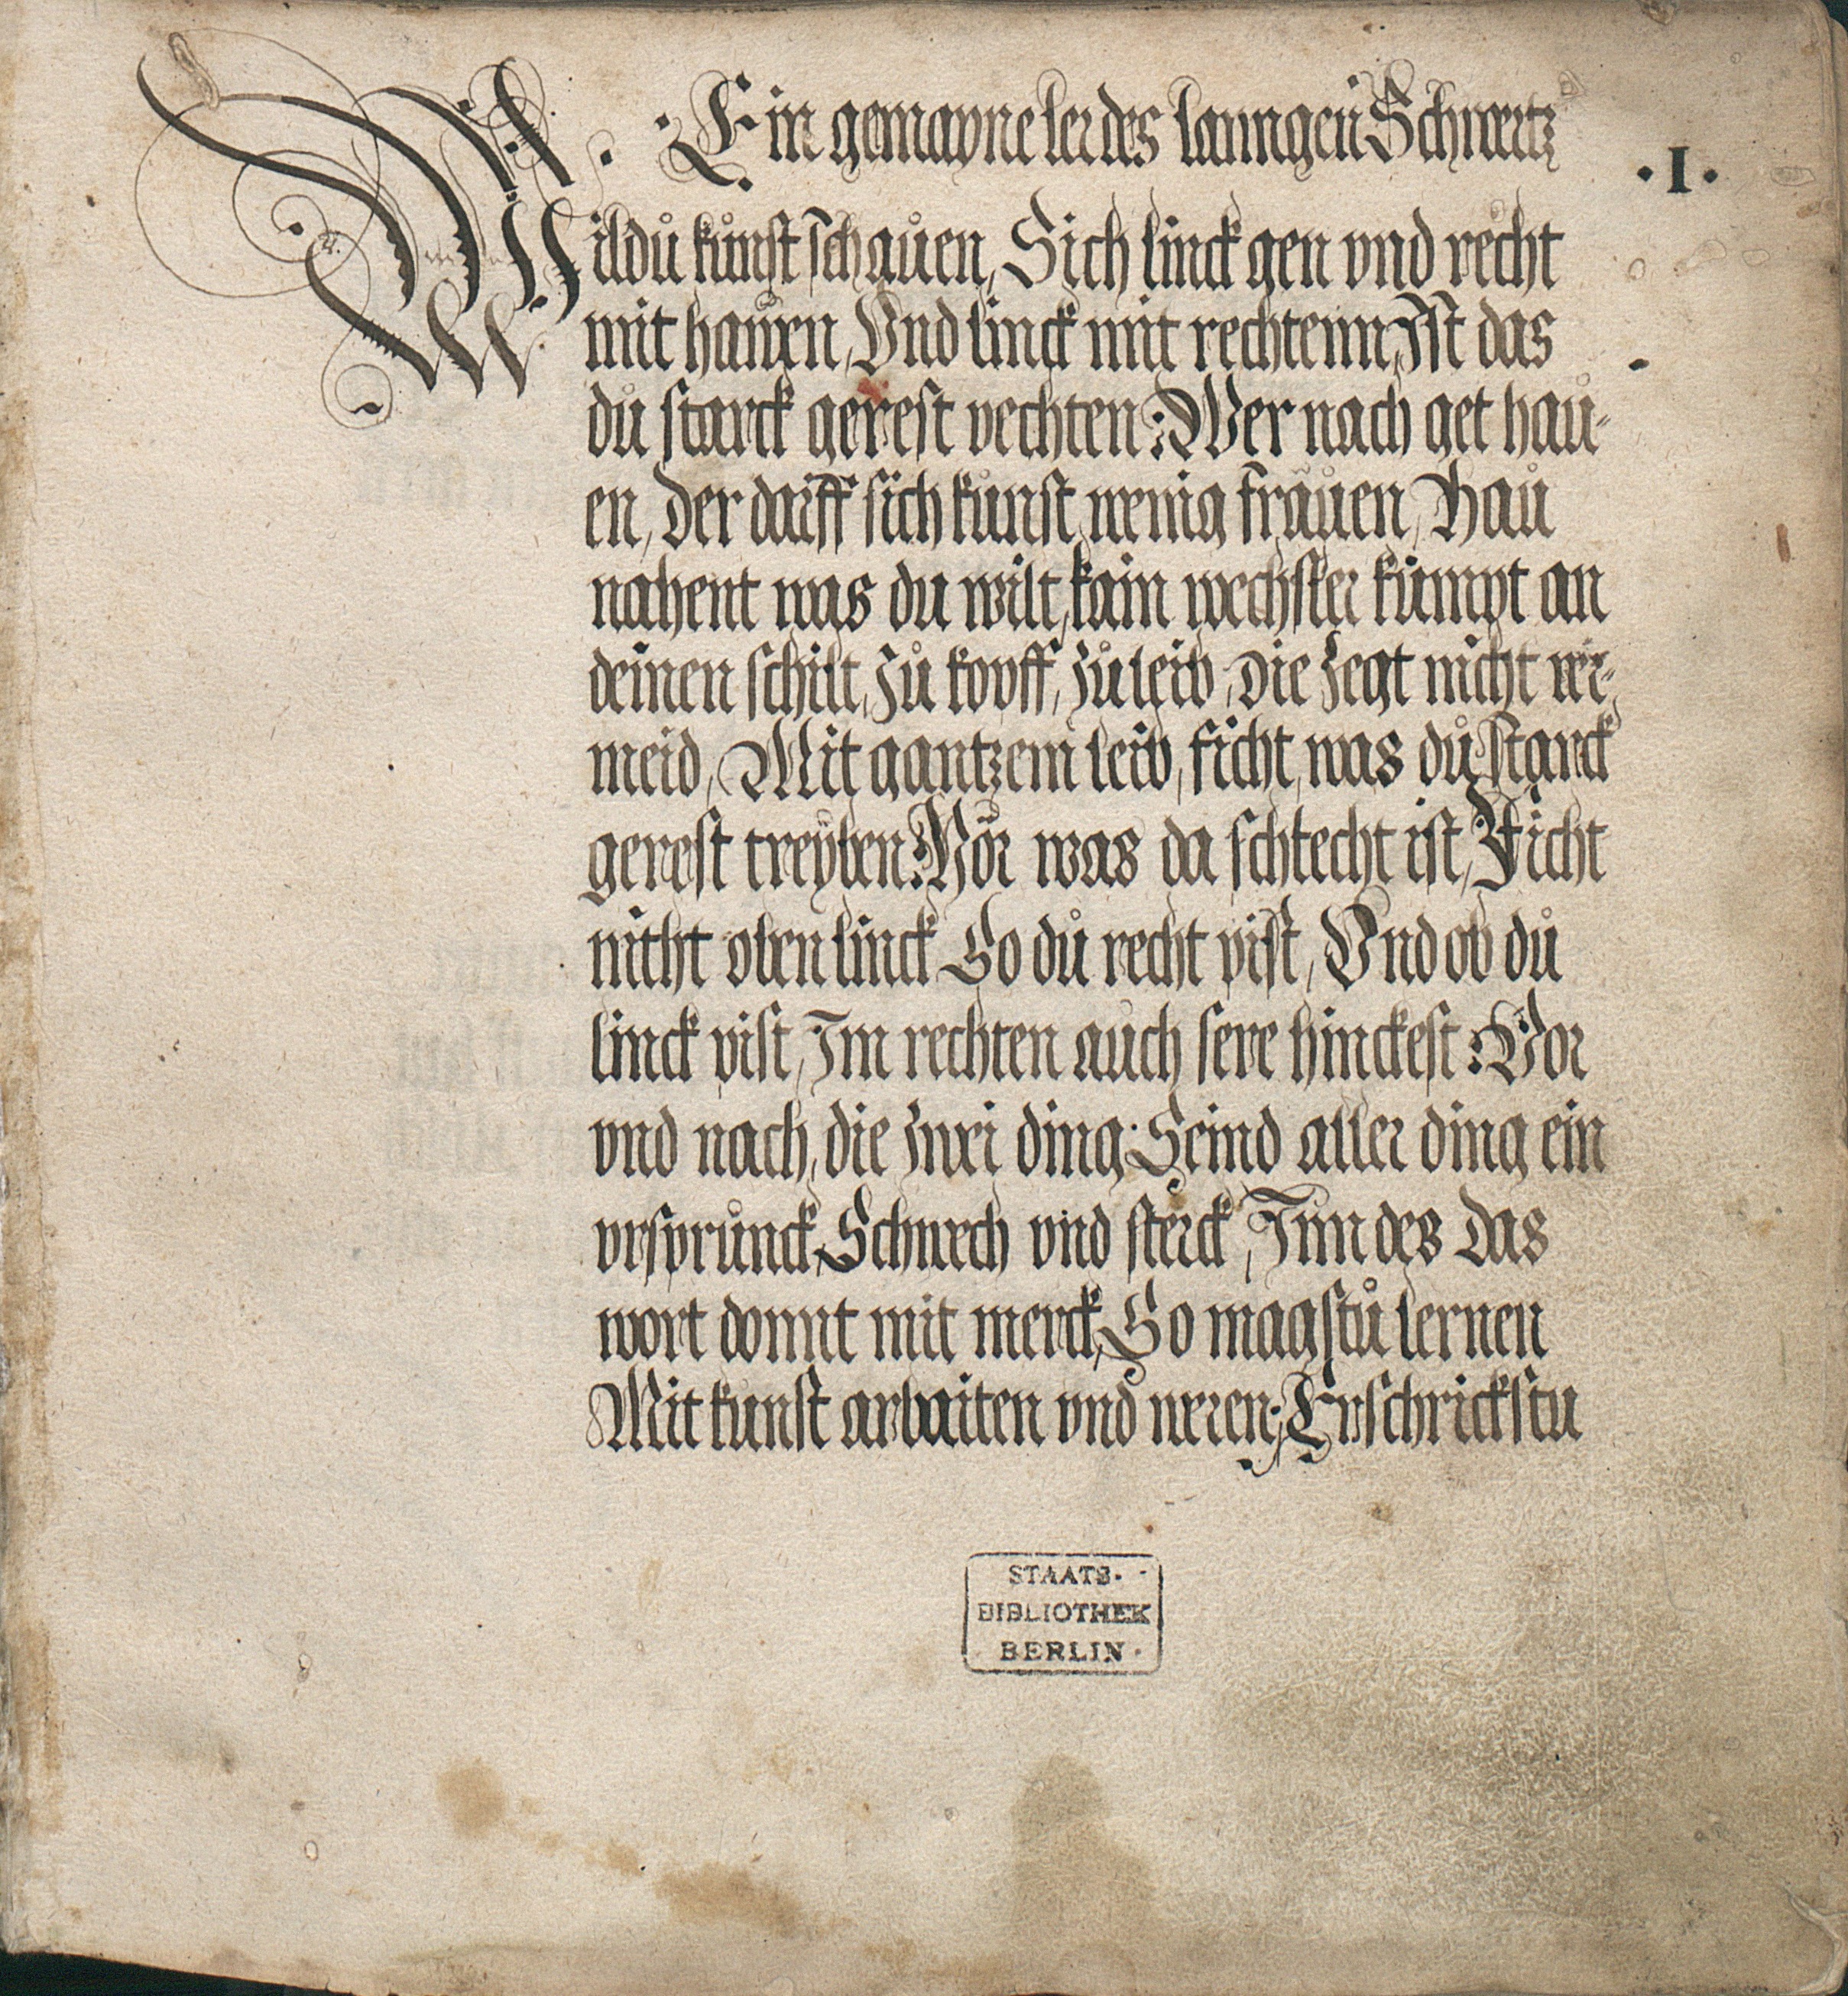 Ein gemayne ler des lanngen Schwertz
·I·
Wildů kůnst schaůen, Sich linck gen vnd recht
mit haůen, Vnd linck mit rechtenn, Ist das
dů starck gerest vechten: Wer nach get haů-
en, der darff sich kůnst wenig fraůen, Haů
nahent was du wilt, kain wechsler kůmpt an
deinen schilt, Zů kopff, Zů leib, die Zegt nicht ver-
meid, Mit gantzem leib, ficht, was dů starck
gerest treÿben: Hör was da schlecht ist, Ficht
nicht oben linck So dů recht pist, Vnd ob dů
linck pist, Im rechten auch sere hinckest: Vor
vnd nach, die Zwei ding: Seind aller ding ein
vrsprůnck, Schwech vnd sterck, Inndes das
wort domit mit merck, So magstů lernen
Mit kunst arbaiten vnd weren: Erschrickstu
STAATS-
BIBLIOTHEK
BERLIN